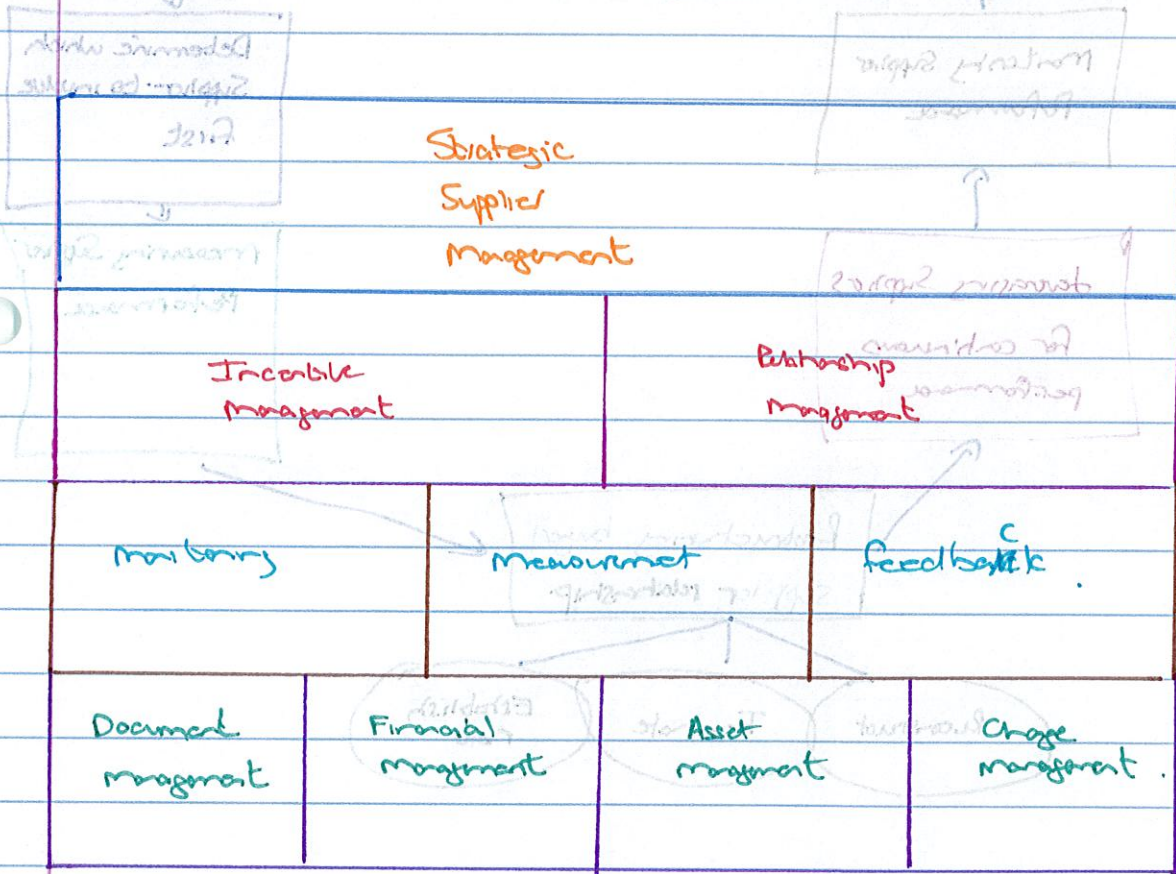 Strategic
Supplier
Management
Incentive
management
Relationship
management
monitoring
measurement
feedback.
Document
management
Financial
management
Asset
management
Change
management.